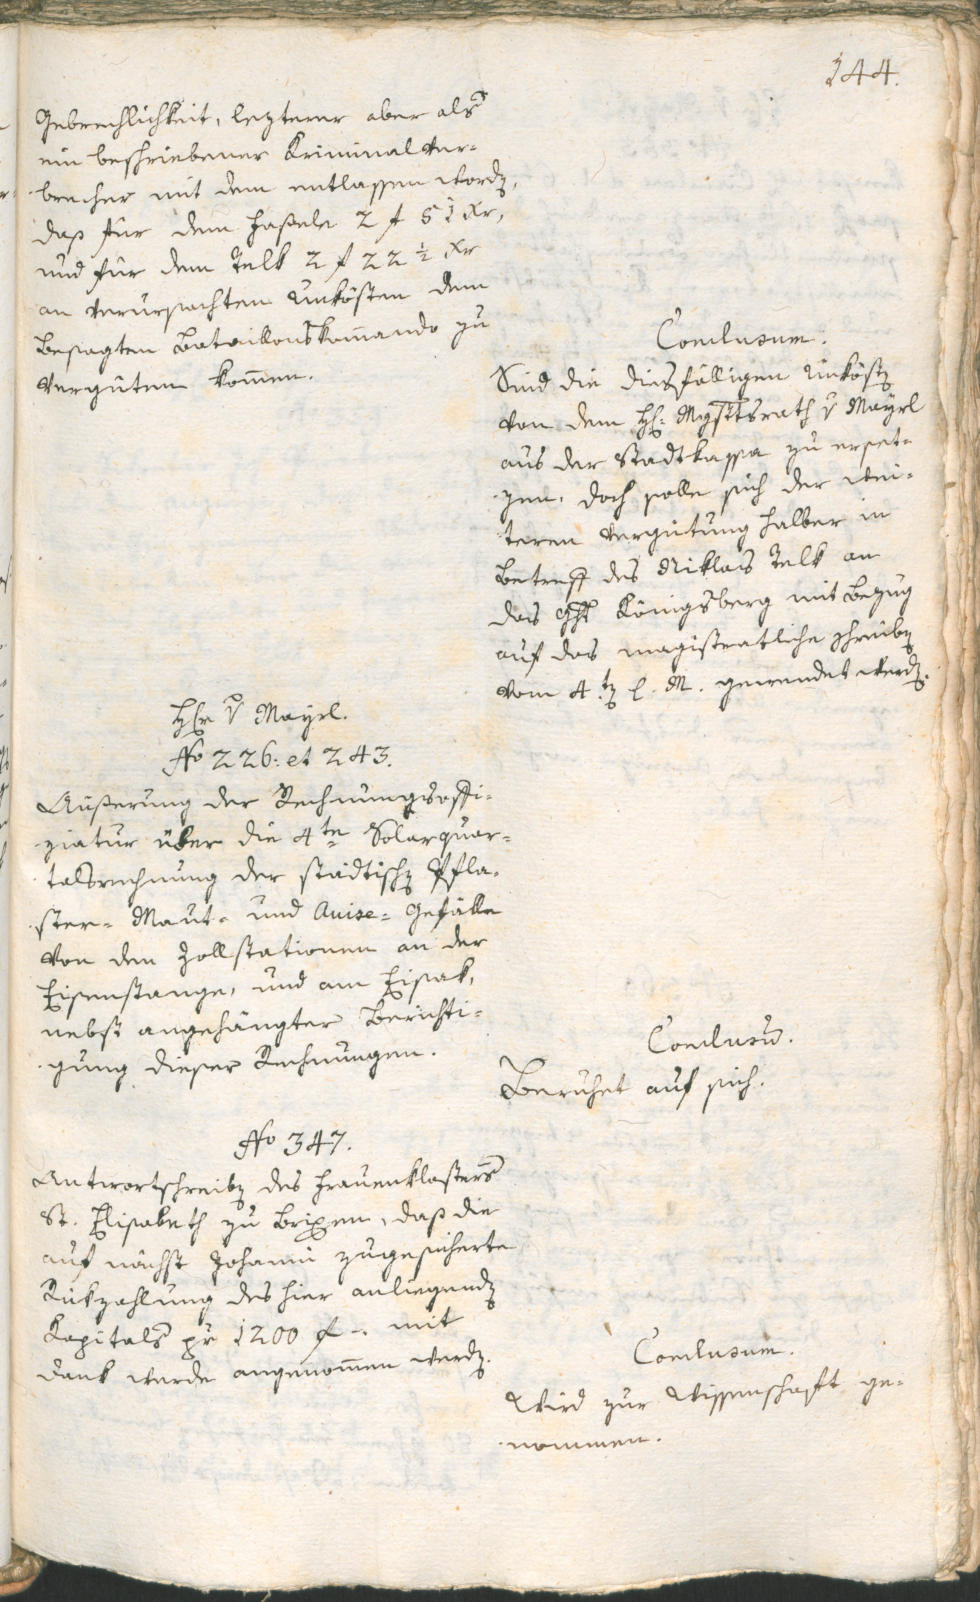 144.
Gebrechlichkeit, lezterer aber als
ein beschriebener Kriminalver-
brecher mit dem entlassen word,
daß für dem Haßele 2 f 51 Xr,
und für dem Telk 2 f 22 1/2 Xr
an verursachten Unkösten dem
besagten Bataillonskom̄ando zu
vergüten kom̄en.
Conclusum.
Sind die diesfälligen Unköst
von dem H: Mgsttsrath v Mayrl
aus der Stadtkassa zu erset-
zen, doch solle sich der wei-
teren Vergütung halber in
Betreff des Niklas Telk an
das Königsberg mit Bezug
auf das magistratliche Schreib
vom 4. l. M. gewendet werd.
Hr v Mayrl.
No 226: et 243.
Äußerung der Rechnungsoffi-
ziatur über die 4te Solarquar-
talsrechnung der städtisch Pfla-
ster- Maut- und Avise- Gefälle
von den Zollstationen an der
Eisenstange, und am Eisak,
nebst angehängter Berichti-
gung dieser Rechnungen.
Conclusū.
Beruhet auf sich.
No 347.
Antwortschreib des Frauenklosters
St. Elisabeth zu Brixen, daß die
auf nächst Johanni zugesicherte
Rükzahlung des hier anliegend
Kapitals pr 1200 f -. mit
Dank werde angenom̄en werd.
Conclusum.
Wird zur Wissenschaft ge-
nommen.